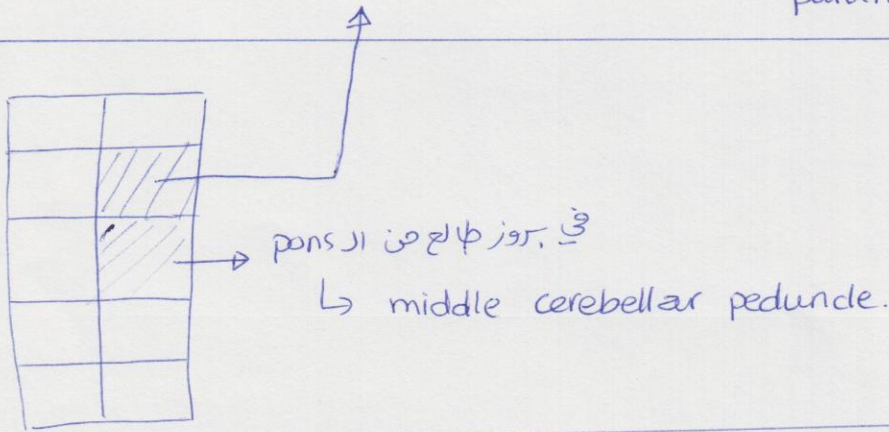 في بروز طالع من الـ pons
↳ middle cerebellar peduncle.